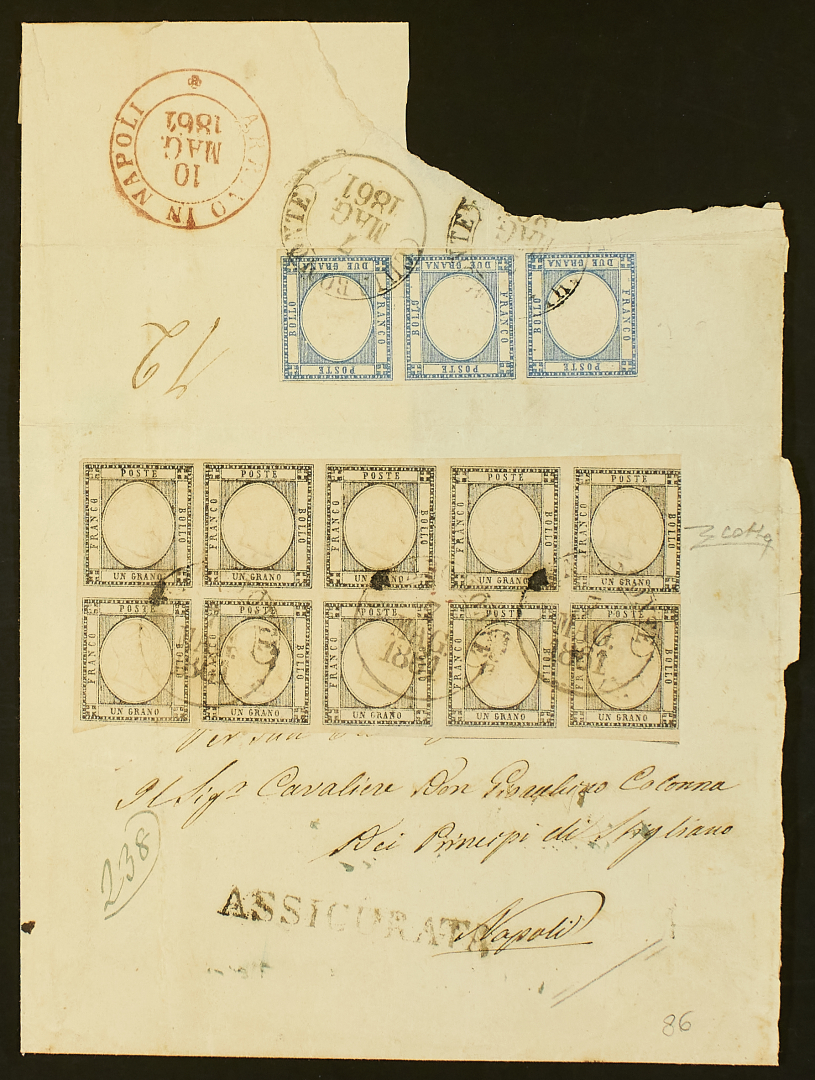 ARRIVO IN NAPOLI
10
MAG.
1861
7
MAG.
1861
MAG.
DUE GRANA DUE GRANA DUE GRANA
BOLLO FRANCO BOLLO FRANCO BOLLO FRANCO
POSTE POSTE POSTE
12
POSTE POSTE POSTE POSTE POSTE
FRANCO BOLLO FRANCO BOLLO FRANCO BOLLO FRANCO BOLLO FRANCO BOLLO
UN GRANO UN GRANO UN GRANO UN GRANO UN GRANO
POSTE POSTE POSTE POSTE POSTE
FRANCO BOLLO FRANCO BOLLO FRANCO BOLLO FRANCO BOLLO FRANCO BOLLO
UN GRANO UN GRANO UN GRANO UN GRANO UN GRANO
MAG.
1861
MAG.
1861
Il Sigr Cavaliere Don Colonna
Dei Principi di Stigliano
238
ASSICURATA
Napoli
86